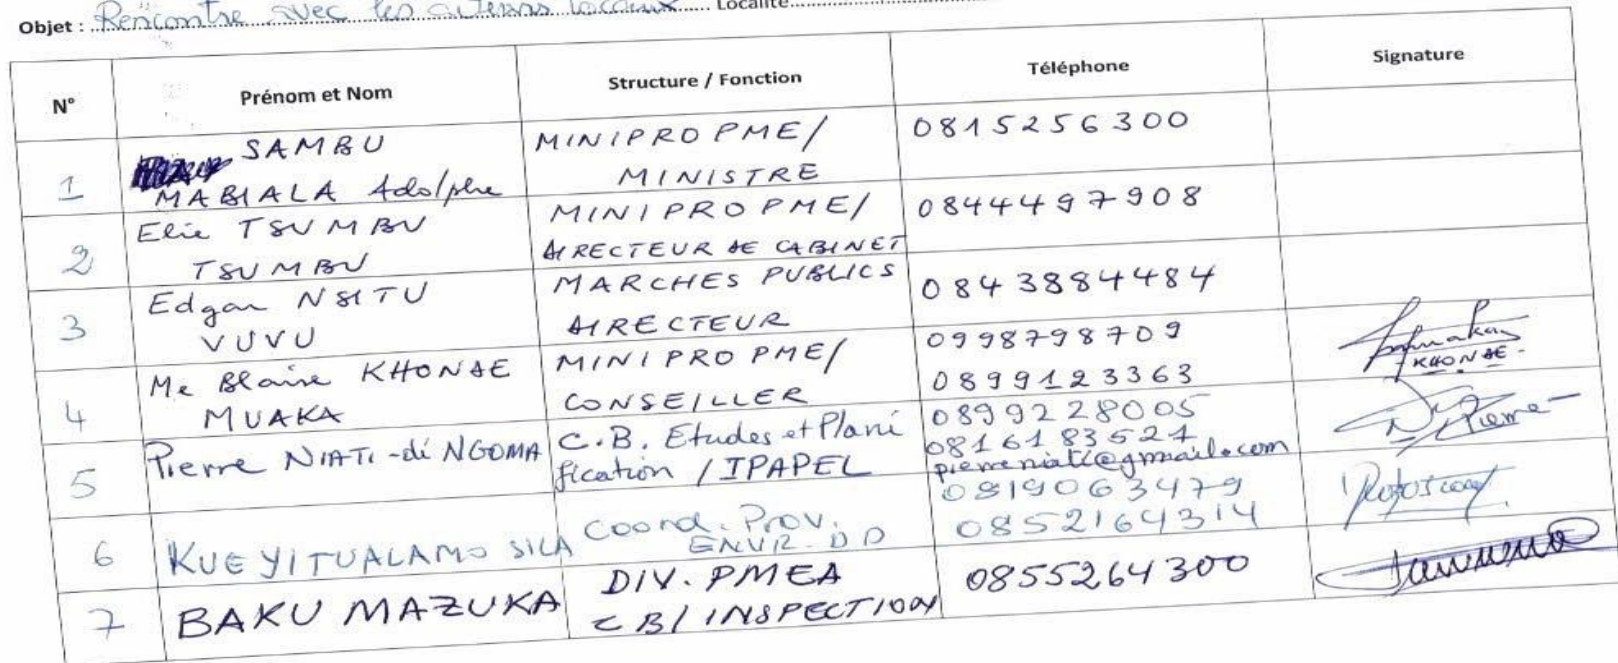 Objet : Rencontre avec les acteurs locaux Localité
N° Prénom et Nom Structure / Fonction Téléphone Signature
1 SAMBU MABIALA Adolphe MINIPRO PME/ MINISTRE 0815256300
2 Elie TSUMBU TSUMBU MINIPRO PME/ DIRECTEUR DE CABINET 0844497908
3 Edgar NSITU VUVU MARCHES PUBLICS DIRECTEUR 0843884484
4 Me Blaise KHONDE MUAKA MINIPRO PME/ CONSEILLER 0998798709 0899123363 KHONDE
5 Pierre NIATI-di NGOMA C.B. Etudes et Plani fication / IPAPEL 0899228005 0816183521 pierreniati@gmail.com Pierre
6 KUEYITUALAMO SILA Coord. Prov. ENVIR. DD 0819063479 0852164314
7 BAKU MAZUKA DIV. PMEA CB/ INSPECTION 0855264300